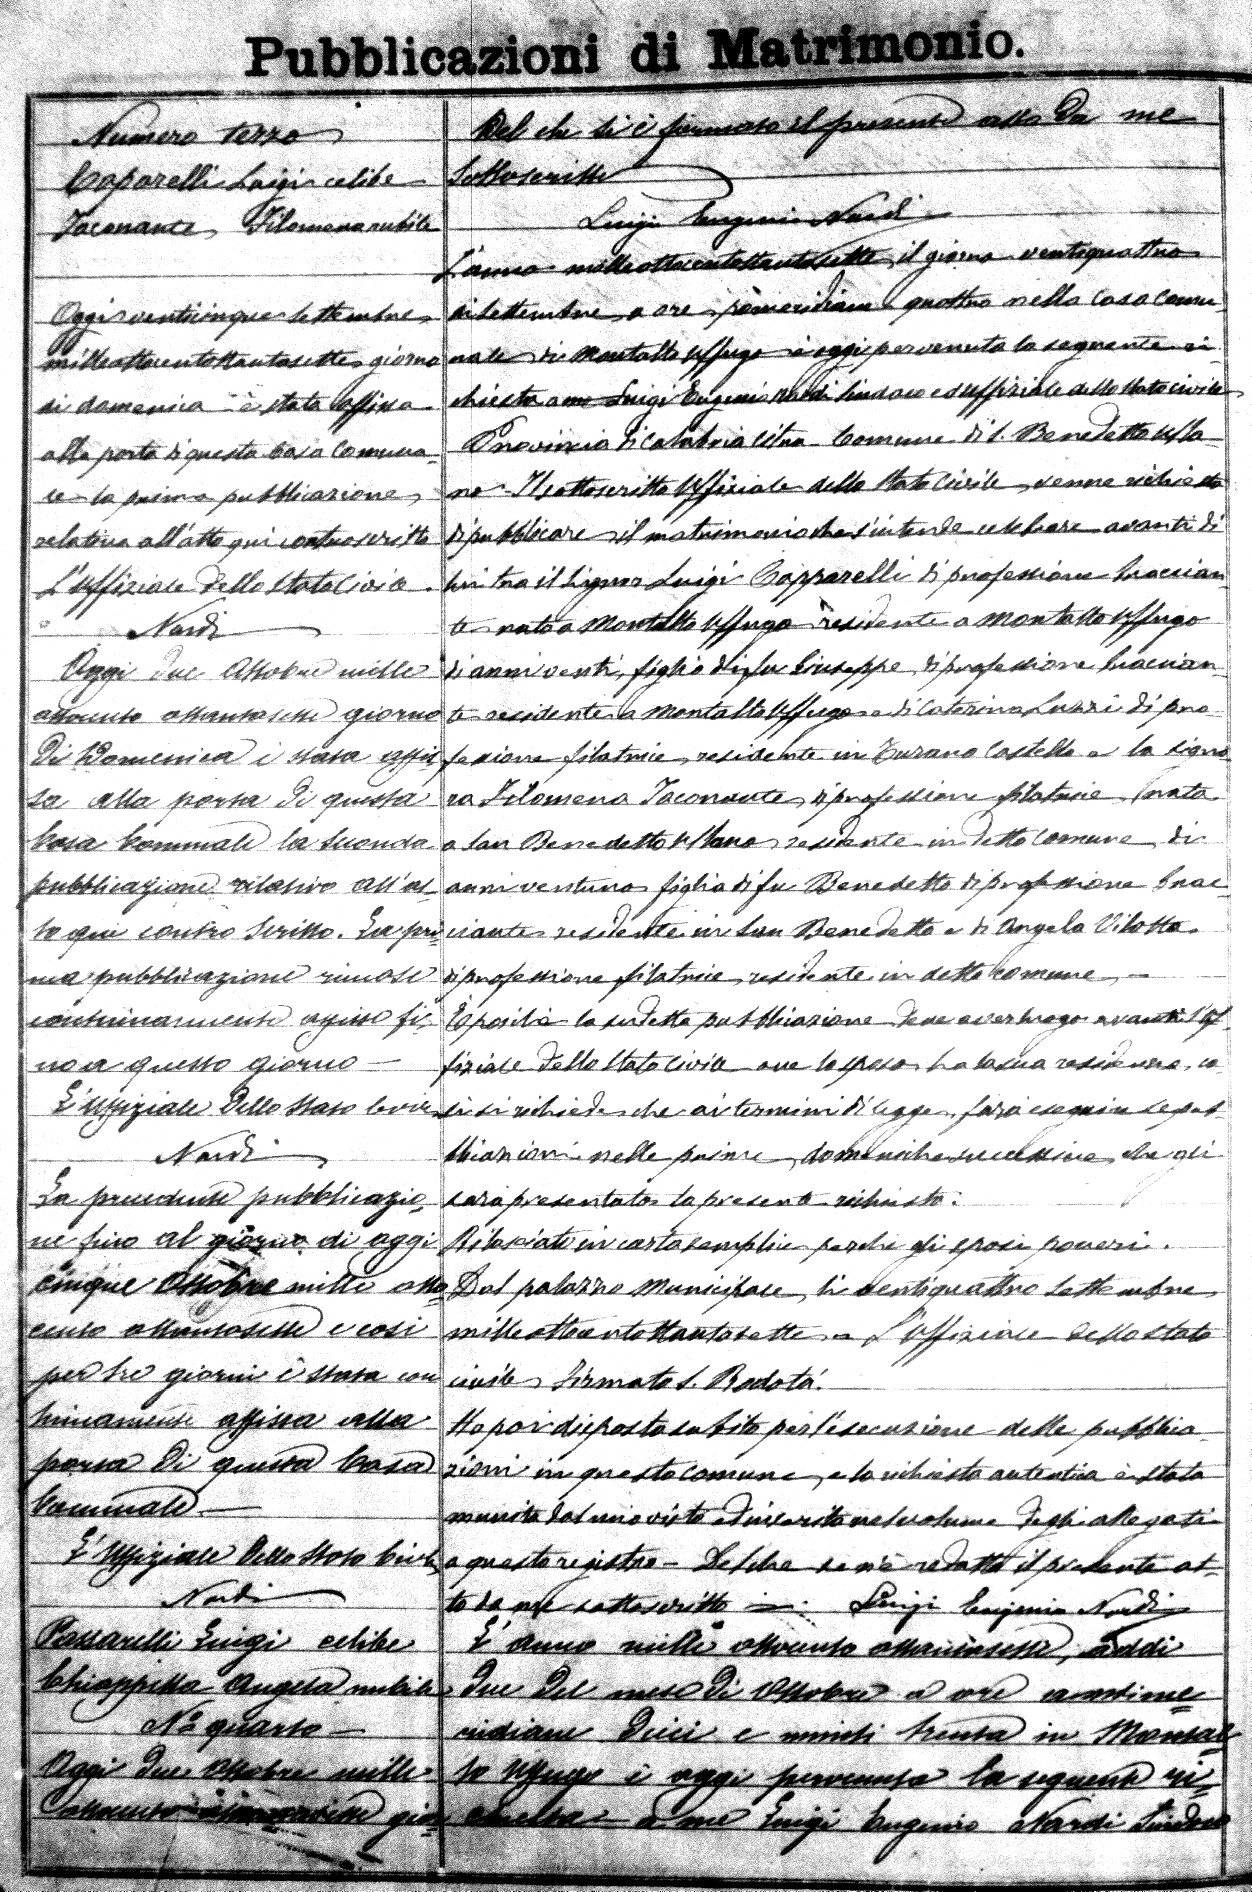 Pubblicazioni di Matrimonio.
Numero terzo
Caparelli Luigi celibe
Iaconante Filomena nubile
Oggi venticinque settembre
milleottocentottantasette giorno
di domenica è stata affissa
alla porta di questa Casa Comuna-
le la prima pubblicazione
relativa all'atto qui controscritto
L'Uffiziale dello Stato Civile.
Nardi
Oggi due Ottobre mille
ottocento ottantasette giorno
di Domenica è stata affis
sa alla porta di questa
Casa Comunale la seconda
pubblicazione relativa all'at-
to qui contro scritto. La pri-
ma pubblicazione rimase
continuamente affissa fi-
no a questo giorno —
L'Uffiziale dello Stato Civile
Nardi
La precedente pubblicazio-
ne fino al giorno di oggi
cinque Ottobre mille otto-
cento ottantasette e così
per tre giorni è stata con
tinuamente affissa alla
porta di questa Casa
Comunale —
L'Uffiziale dello Stato Civile
Nardi
Passarelli Luigi celibe
Chiappetta Angela nubile
N° quarto —
Oggi due Ottobre mille
ottocento ottantasette gior-
Del che si è formato il presente atto da me
sottoscritto
Luigi Eugenio Nardi
L'anno milleottocentottantasette, il giorno ventiquattro
di settembre, a ore pomeridiane quattro nella Casa Comu-
nale di Montalto Uffugo è oggi pervenuta la seguente ri
chiesta a me Luigi Eugenio Nardi Sindaco ed Uffiziale dello Stato Civile
Provincia di Calabria Citra Comune di S. Benedetto Ulla-
no. Il sottoscritto Uffiziale dello Stato Civile, venne richiesto
di pubblicare il matrimonio che s'intende celebrare avanti di
lui tra il Signor Luigi Capparelli di professione braccian-
te nato a Montalto Uffugo residente a Montalto Uffugo
di anni venti, figlio di fu Giuseppe, di professione braccian-
te residente a Montalto Uffugo e di Caterina Luzzi di pro-
fessione filatrice, residente in Turano Castello e la signo
ra Filomena Iaconante, di professione filatrice, nata
a San Benedetto Ullano residente in detto Comune, di
anni ventuno figlia di fu Benedetto di professione brac-
ciante residente in San Benedetto e di Angela Vilotta
di professione filatrice, residente in detto Comune —
E poichè la sudetta pubblicazione deve aver luogo avanti l'Uf
fiziale dello Stato Civile ove lo sposo ha la sua residenza, co
sì si richiede che ai termini di legge, farà eseguire le pub-
blicazioni nelle prime domeniche successive che gli
sarà presentata la presente richiesta.
Rilasciato in carta semplice perchè gli sposi poveri.
Dal palazzo Municipale, li ventiquattro Settembre
milleottocentottantasette. L'Uffiziale dello Stato
civile, Firmato S. Rodotà.
Ho poi disposto subito per l'esecuzione delle pubblica-
zioni in questo Comune, e la richiesta autentica è stata
munita dal mio visto ed inserita nel volume degli allegati
a questo registro — Del che se n'è redatto il presente at-
to da me sottoscritto —. Luigi Eugenio Nardi
L'anno mille ottocento ottantasette, addì
due del mese di Ottobre a ore antime
ridiane dieci e minuti trenta in Montal-
to Uffugo è oggi pervenuta la seguente ri-
chiesta a me Luigi Eugenio Nardi Sindaco